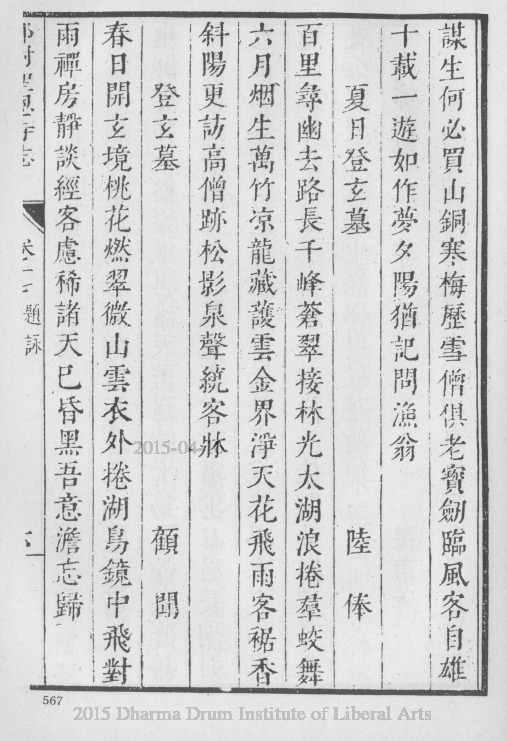 謀生何必買山銅寒梅歷雪僧俱老寶劒臨風客自雄
十載一遊如作夢夕陽猶記問漁翁
夏日登玄墓 陸俸
百里尋幽去路長千峰蒼翠接林光太湖浪捲羣蛟舞
六月烟生萬竹凉龍藏護雲金界淨天花飛雨客裾香
斜陽更訪高僧跡松影泉聲繞客牀
登玄墓 顧聞
春日開玄境桃花燃翠微山雲衣外捲湖鳥鏡中飛對
雨禪房靜談經客慮稀諸天已昏黑吾意澹忘歸
題詠
567
2015-04-
2015 Dharma Drum Institute of Liberal Arts